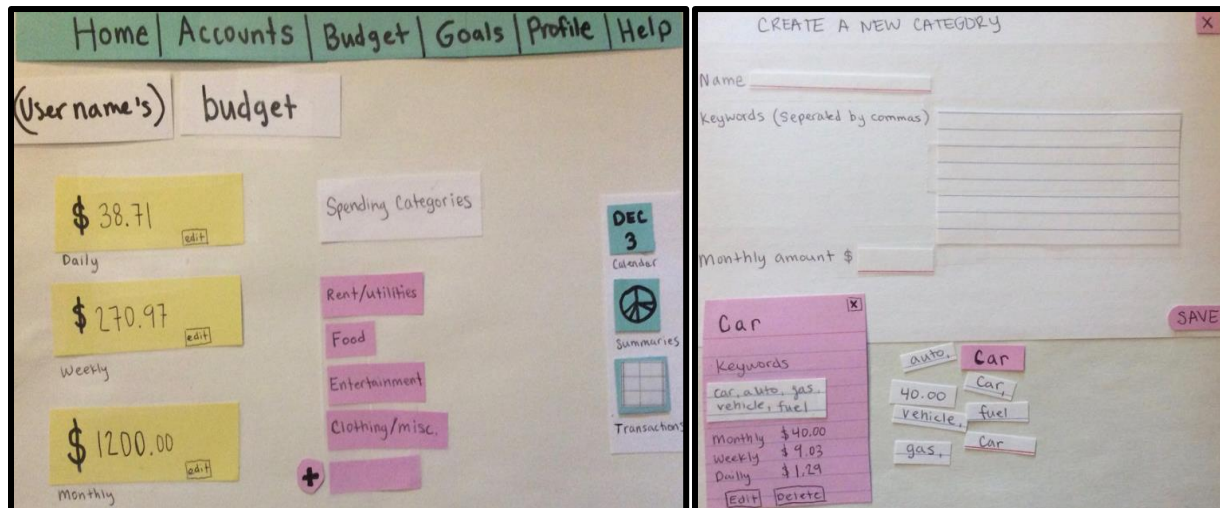 Home | Accounts | Budget | Goals | Profile | Help
(User name's) budget
$ 38.71
edit
Daily
$ 270.97
edit
Weekly
$ 1200.00
edit
Monthly
Spending Categories
Rent/utilities
Food
Entertainment
Clothing/misc.
+
DEC
3
Calendar
Summaries
Transactions
CREATE A NEW CATEGORY
X
Name
Keywords (Seperated by commas)
Monthly amount $
SAVE
X
Car
Keywords
car, auto, gas,
vehicle, fuel
Monthly $40.00
Weekly $9.03
Dailly $1.29
Edit Delete
auto, Car
40.00 Car,
vehicle, fuel
gas, Car